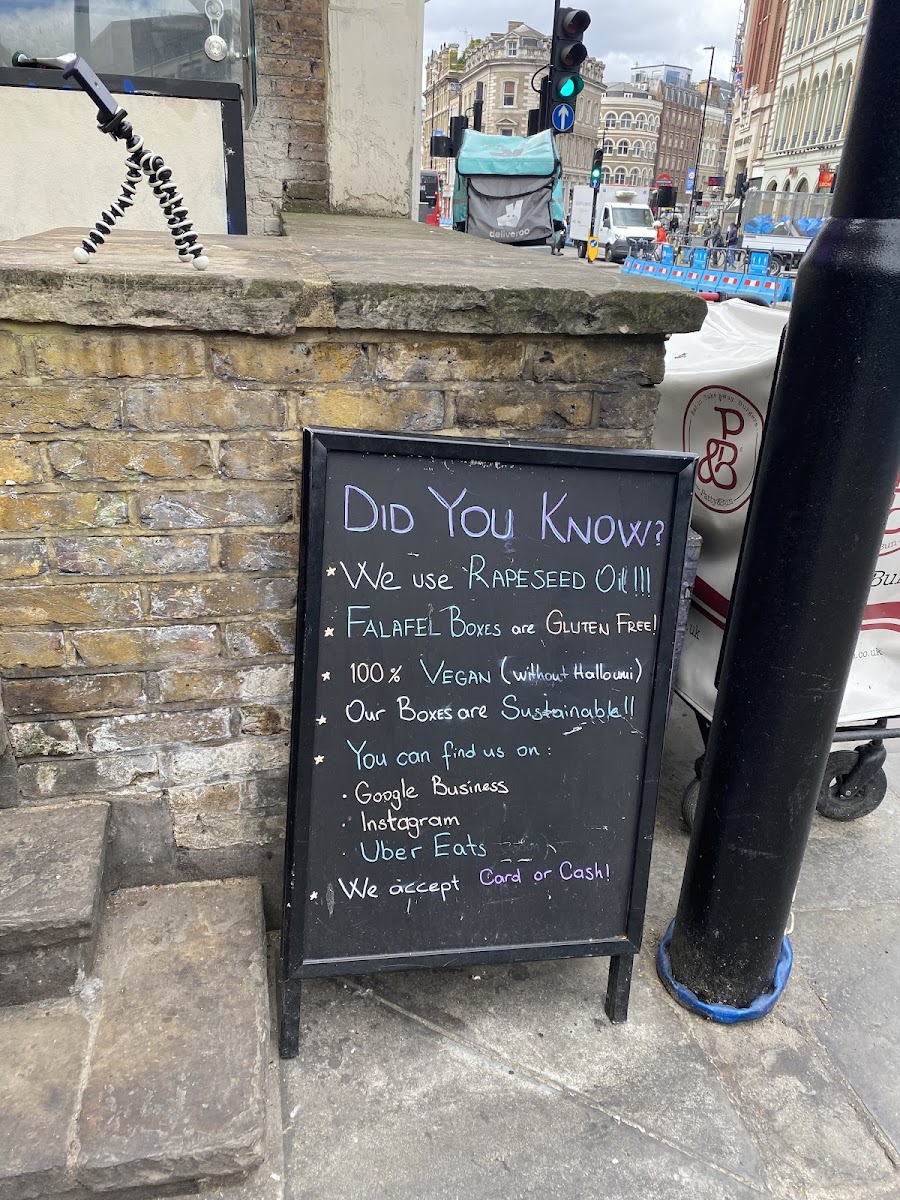 deliveroo
P
&B
Patty&Bun
DID YOU KNOW?
* WE use RAPESEED Oil!!!
* FALAFEL BOXES are GLUTEN FREE!
* 100% VEGAN (without Halloumi)
* Our Boxes are Sustainable!!
* You can find us on:
· Google Business
· Instagram
· Uber Eats
* We accept Card or Cash!
Bu
co.uk